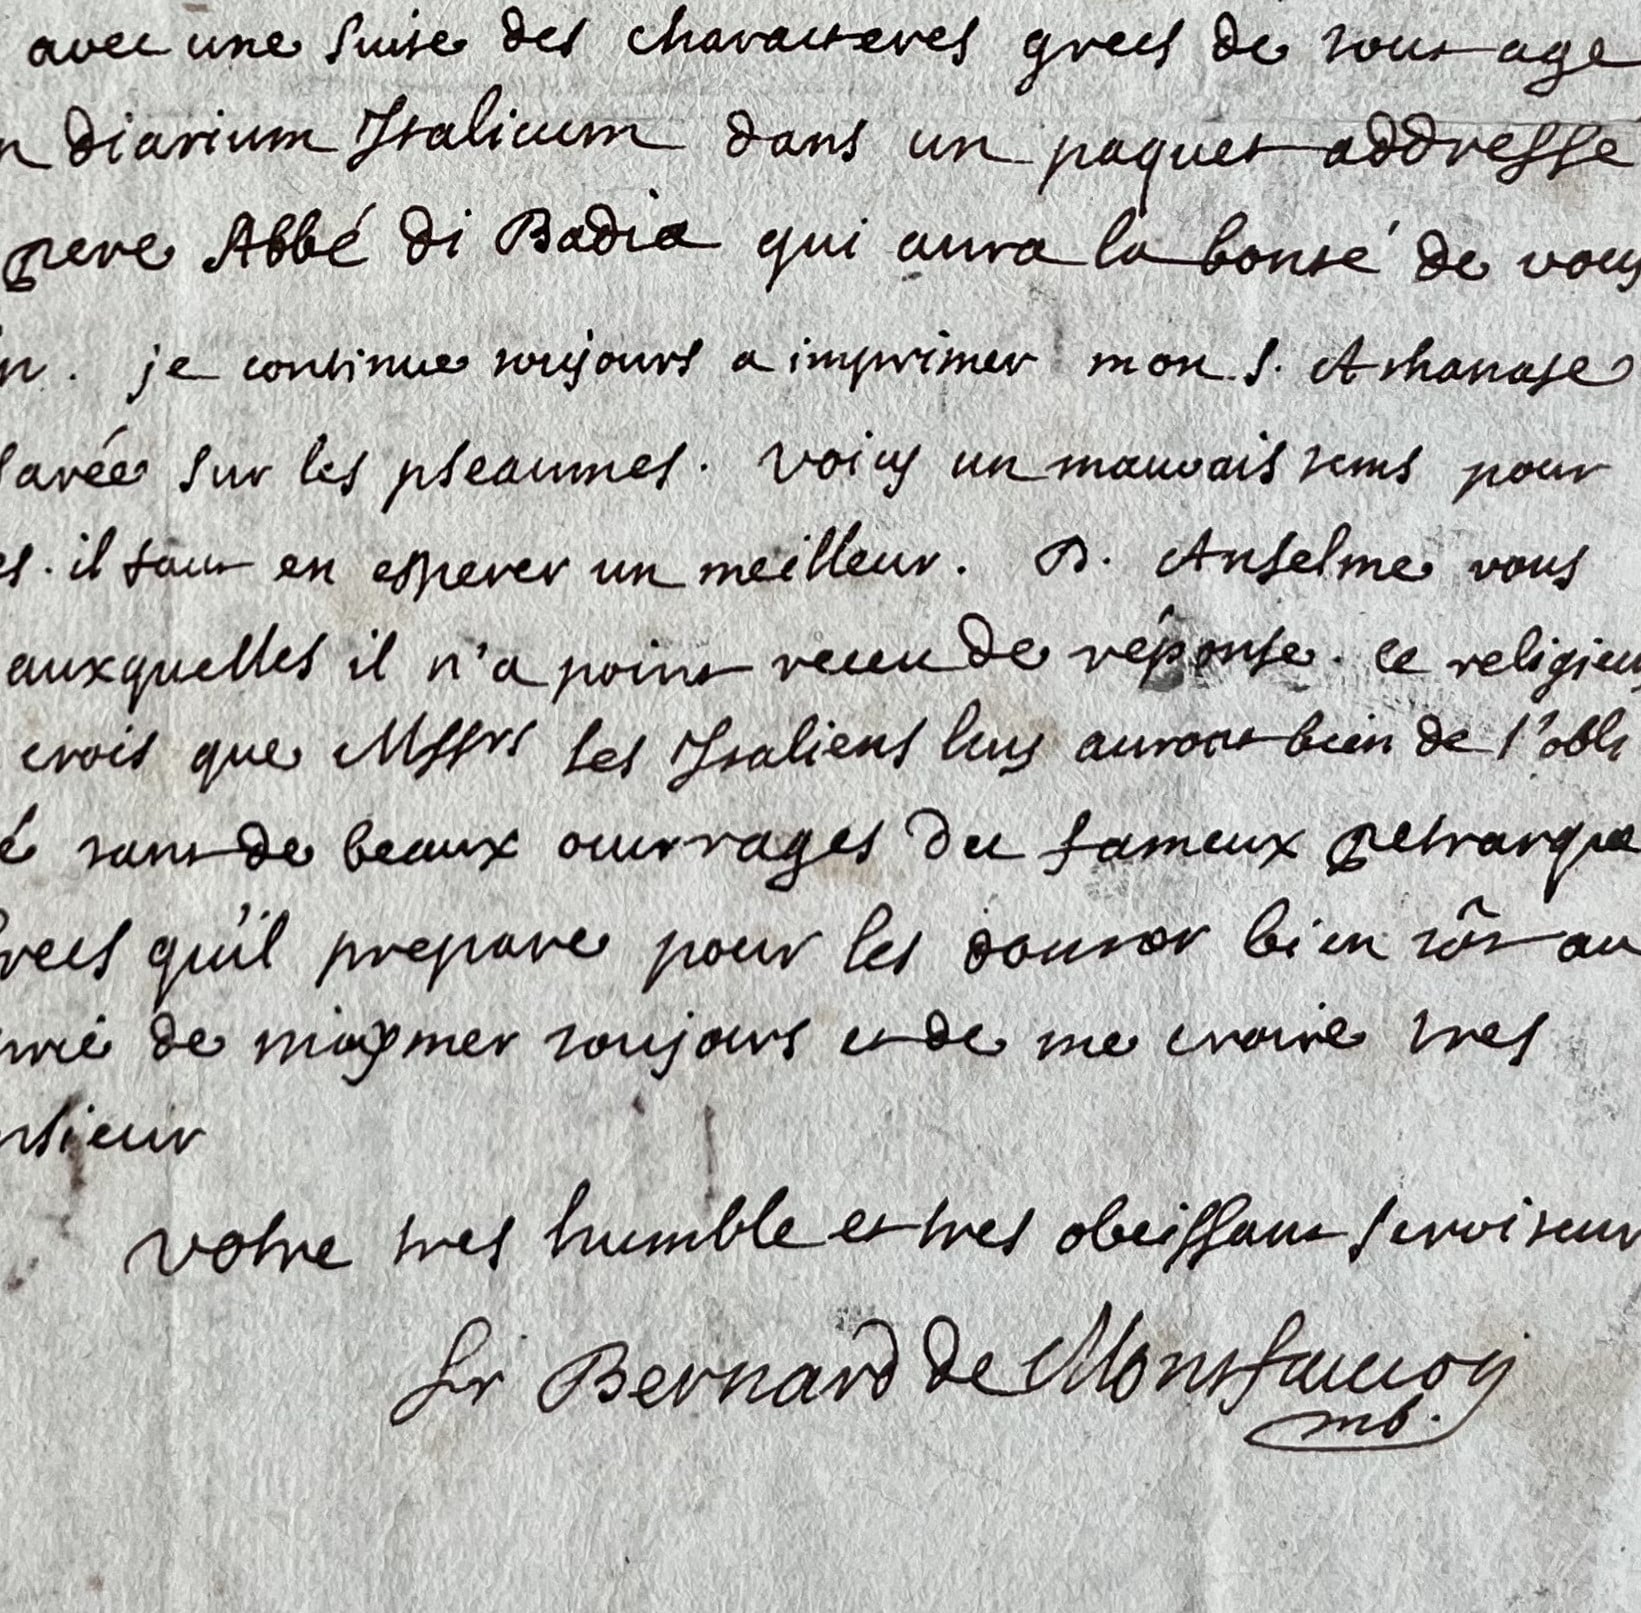 avec une suite des characteres grecs de tout age
n diarium Italicum dans un paquet addressé
pere Abbé di Badia qui aura la bonté de vous
n. je continue toujours a imprimer mon S. Athanase
sarée sur les pseaumes. voicy un mauvais tems pour
es. il faut en esperer un meilleur. D. Anselme vous
auxquelles il n'a point receu de réponse. ce religieux
crois que Mssrs les Italiens luy auront bien de l'obli
é tant de beaux ouvrages du fameux petrarque
recs qu'il prepare pour les donner bien tôt au
de m'aymer toujours et de me croire tres
nsieur
votre tres humble et tres obeissant serviteur
fr Bernard de Montfaucon
mb.